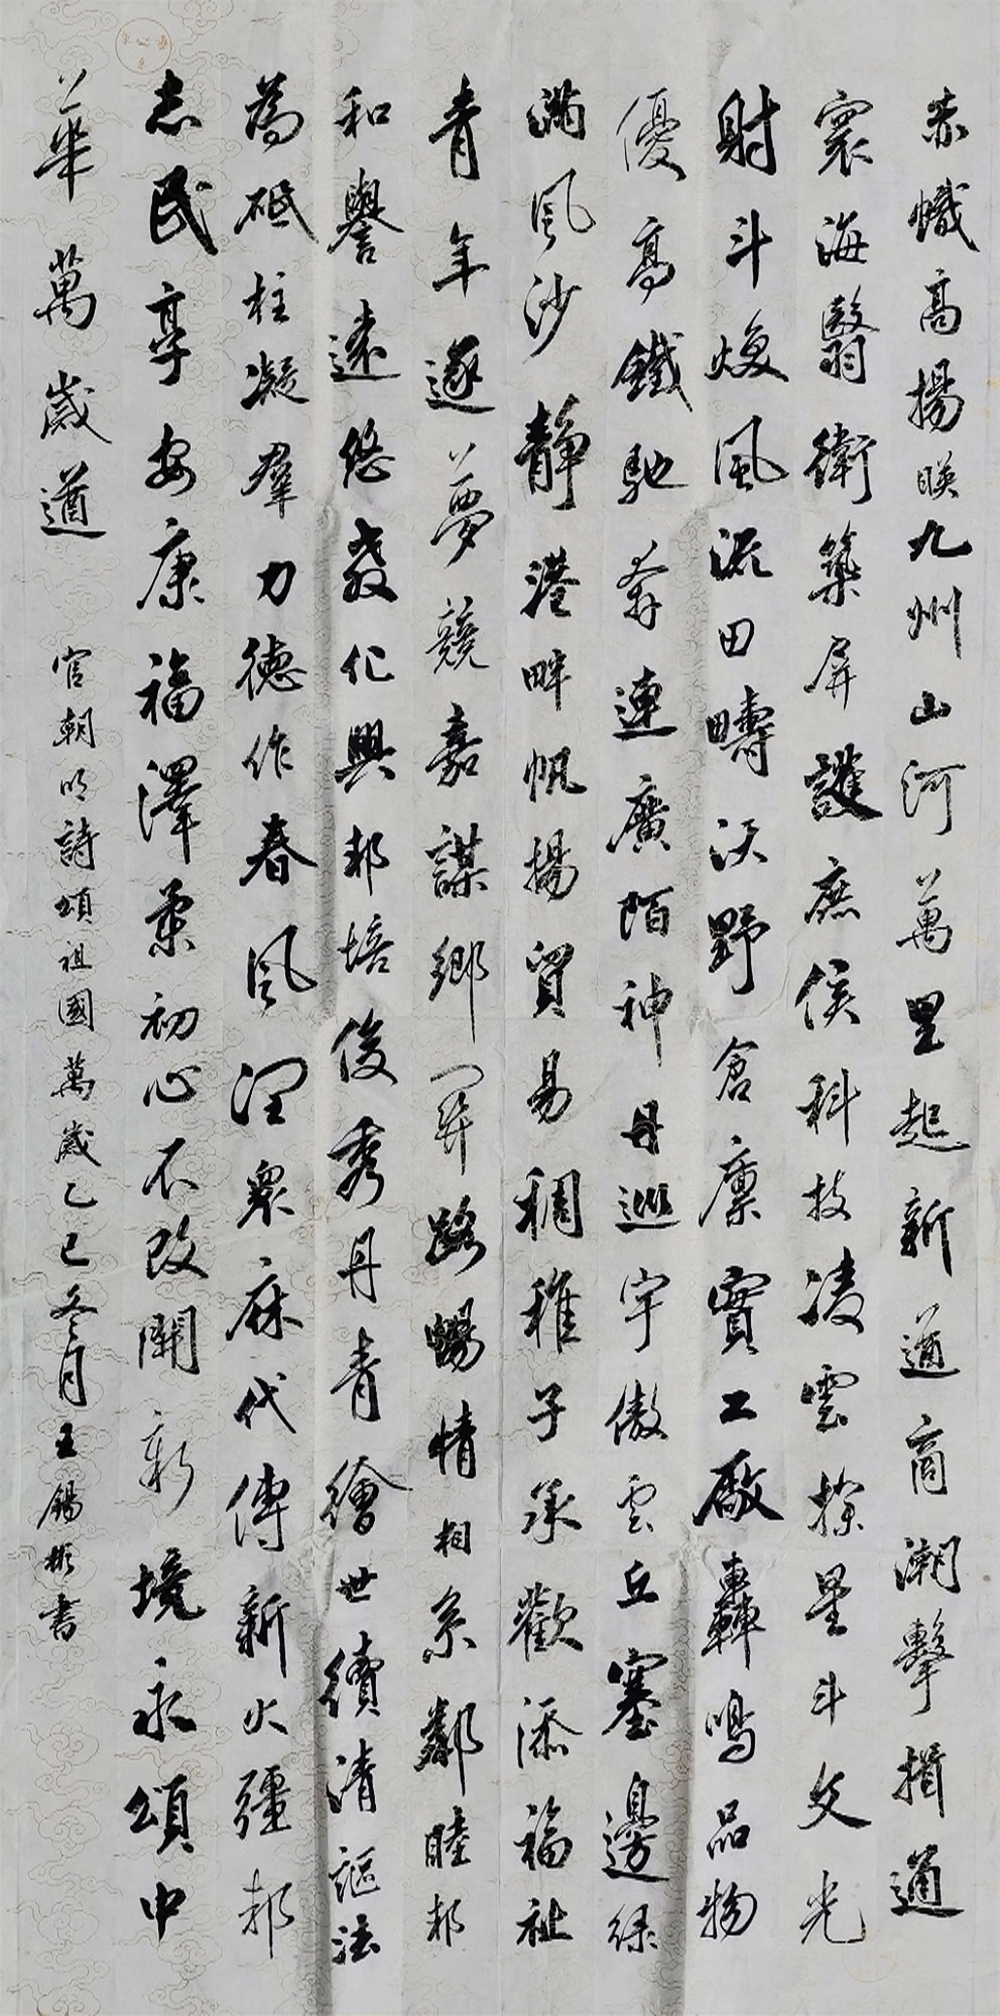 赤幟高揚暎九州山河萬里起新道商潮擊揖通
寰海翳衛築屏護庶侯科技凌雲探星斗文光
射斗煥風流田疇沃野倉廩實工廠轟鳴品物
優高鐵馳奔連廣陌神丹巡宇傲雲丘塞邊綠
滿風沙靜港畔帆揚貿易稠稚子承歡添福祉
青年逐夢競嘉謀鄉關路暢情相系鄰睦邦
和譽遠悠教化興邦培俊秀丹青繪世續清謳法
為砥柱凝羣力德作春風潤眾庥代傳新火疆邦
志民享安康福澤柔初心不改開新境永頌中
華萬歲道 官朝明詩頌祖國萬歲乙巳冬月王錫彬書